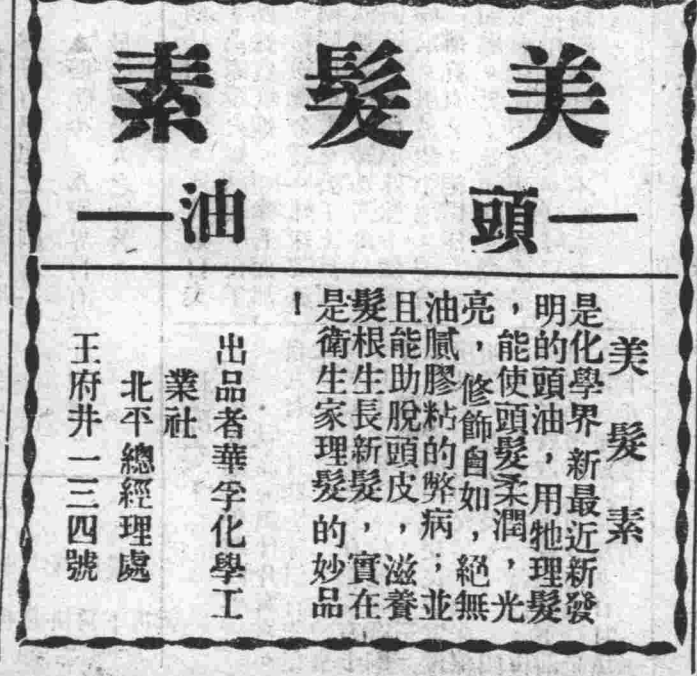 美髮素
頭油
美髮素
是化學界新最近新發
明的頭油，用牠理髮
，能使頭髮柔潤，光
亮，修飾自如，絕無
油膩膠粘的弊病；並
且能助脫頭皮，滋養
髮根生長新髮，實在
是衛生家理髮的妙品
！
出品者華孚化學工
業社
北平總經理處
王府井一三四號